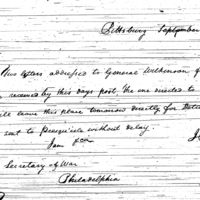 Pittsburg September
Two letters addressed to General Wilkinson
received by this days post. The one directed to
will leave this place tomorrow directly for Detro
sent to Presqu'ile without delay.
I am
Secretary of War
Philadelphia